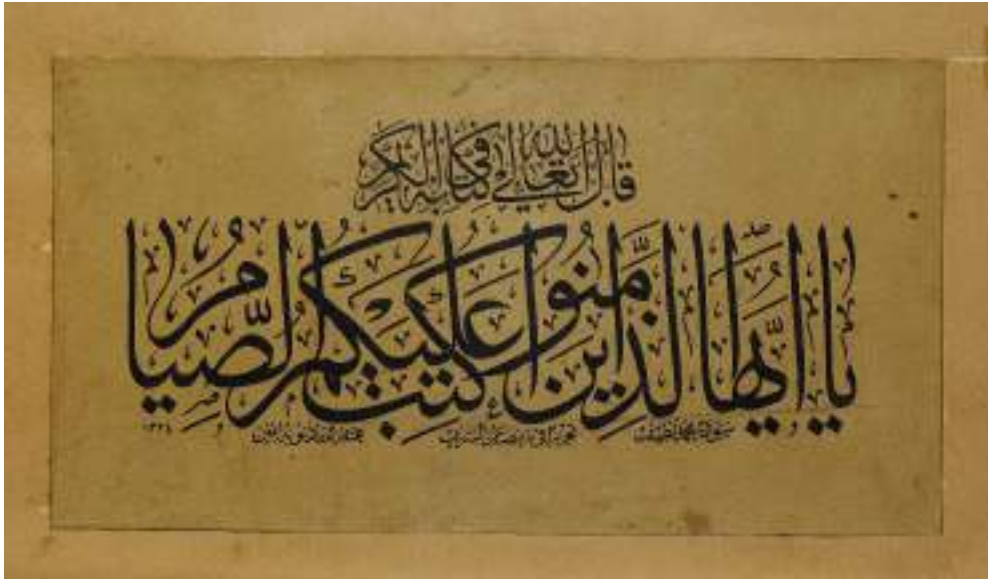 قال الله تعالى في كتابه الكريم
يا ايها الذين امنوا كتب عليكم الصيام